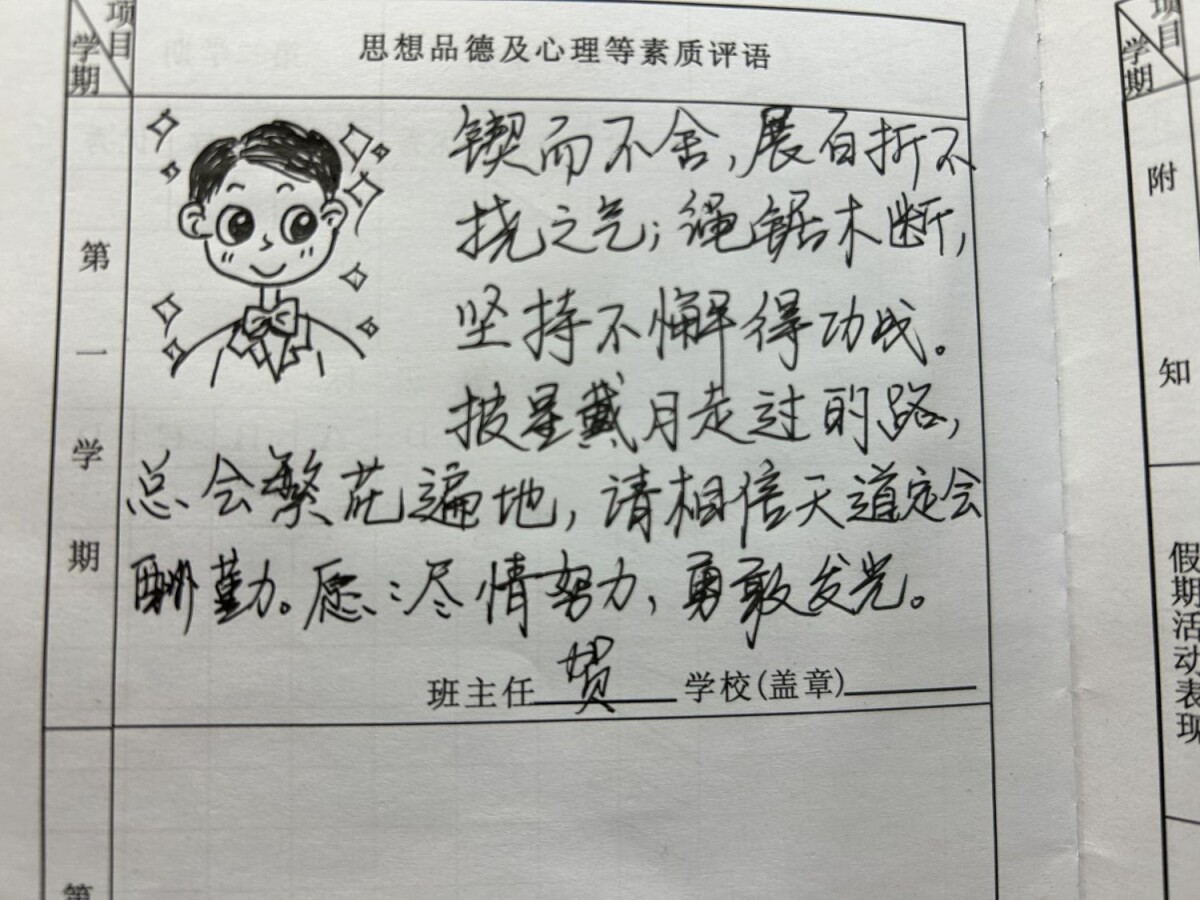 项目
学期
思想品德及心理等素质评语
第一学期
锲而不舍,展百折不
挠之气;绳锯木断,
坚持不懈得功成。
披星戴月走过的路,
总会繁花遍地,请相信天道定会
酬勤。愿:尽情努力,勇敢发光。
班主任 贺 学校(盖章)
第
项目
学期
附
知
假期活动表现